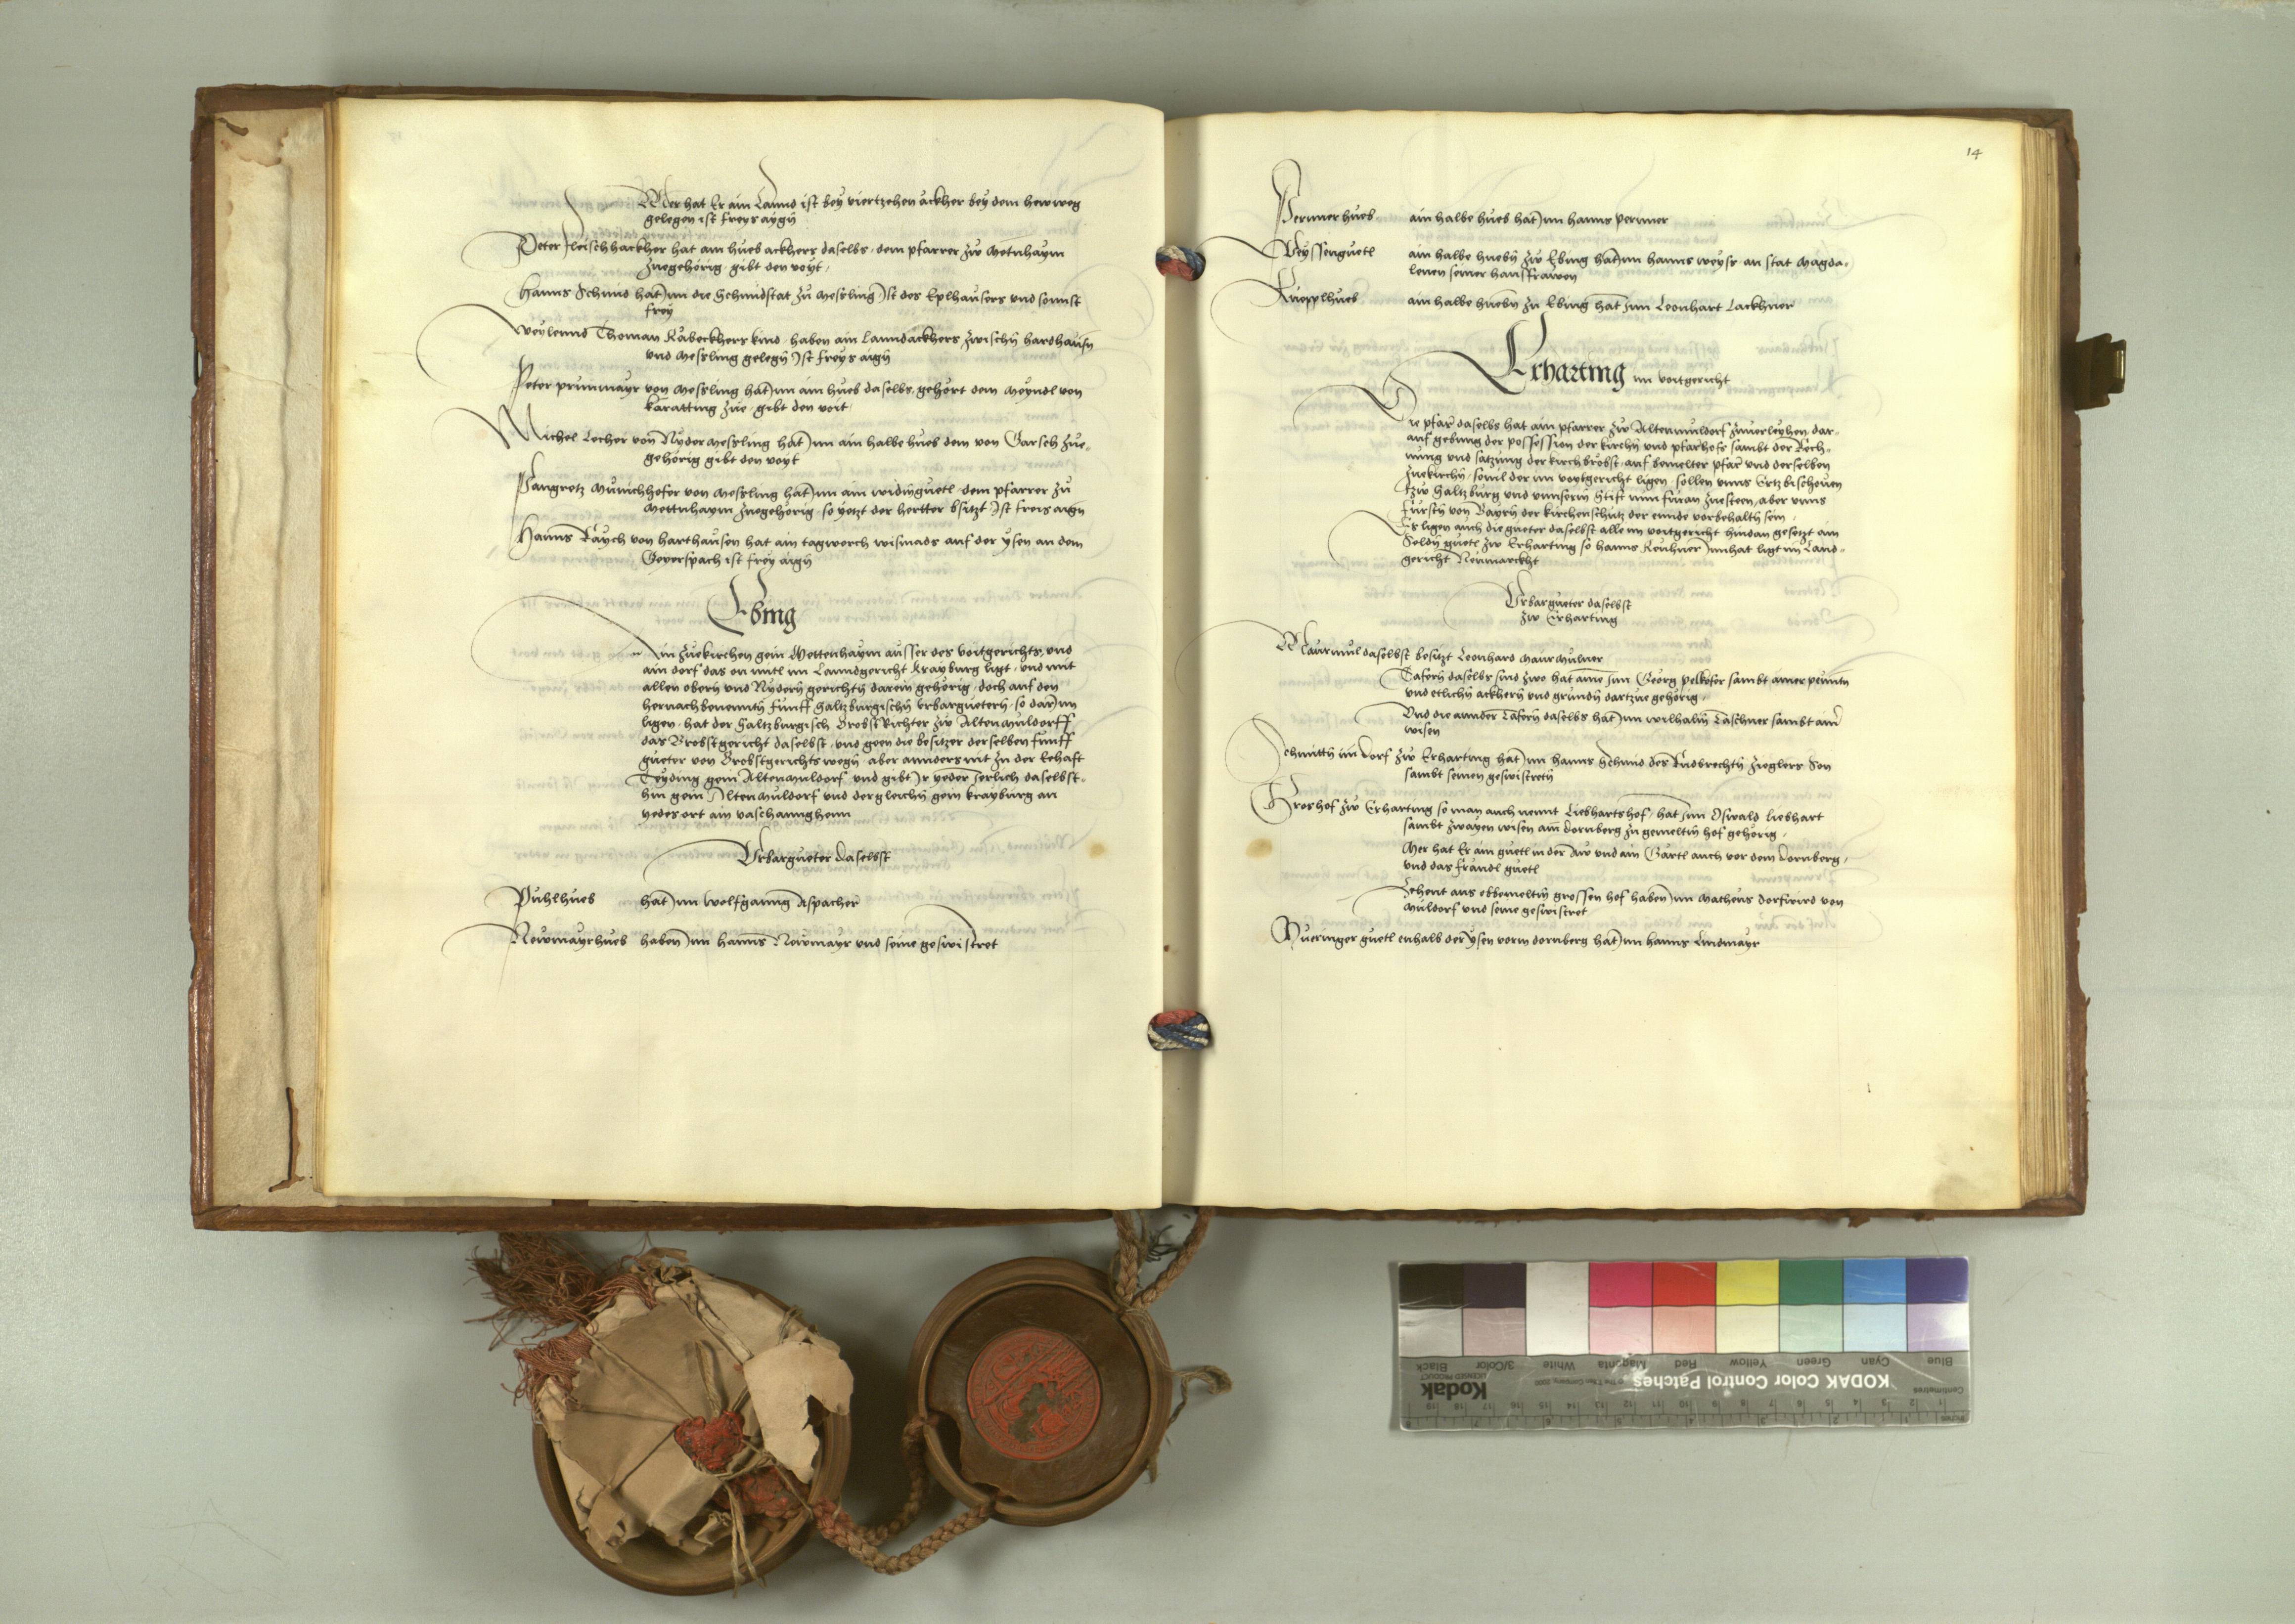 Mer hat Er ain Lannd ist bey viertzehen äckher bey dem herweg
gelegen ist freys aygn̄
Peter fleischhackher hat ain hueb ackhers daselbs, dem pfarrer zw Metnhaym
zuegehörig, gibt den voyt,
Hanns Schmid hat Inn die Schmidstat zu Mesling Ist des Eplhausers und sonnst
frey
Weylennd Thoman Räbeckhers kind, haben ain Lanndackhers zwischn̄ hardhausn̄
und Mesling gelegn̄ Ist freys aign̄
Peter prunmayr von Mesling hat Inn ain hueb daselbs, gehört dem Meyndl von
karatting zue, gibt den voit
Michel Lecher von Nyder Mesling hat Inn ain halbe hueb dem von Garsch zue-
gehörig gibt den voyt
Pangretz Munichhofer von Mesling hat Inn ain widnguetl, dem pfarrer zu
Mettnhaym zuegehörig, so yetzt der hertter bsitzt Ist freis aign̄
Hanns Räych von harthausen hat ain tagwerch wismads auf der ysen an dem
Geyerspach ist frey aign̄
Ebing
Ain zuekirchen gein Mettenhaym ausser des voitgerichts, und
ain dorf das on mitl im Lanndgericht Krayburg ligt, und mit
allen obern̄ und Nydern̄ gerichtn̄ darein gehörig, doch auf den
hernachbenenntn̄ funff Saltzburgischn̄ Urbarguetern̄, so darinn
ligen, hat der Saltzburgisch BrobstRichter zw AltenMuldorff
das Brobstgericht daselbst, und geen die besitzer derselben funff
güeter von Brobstgerichts wegn̄, aber annders nit zu der Eehaft
Teyding gein AltenMuldorf und gibt Ir yeder Jerlich daselbst-
hin gein AltenMuldorf und dergleichn̄ gein krayburg an
yedes ort ain vaschannghenn
Urbargueter daselbst
Puhlhueb hat Inn Wolfganng Aspacher
Newmayrhueb haben Inn hanns Newmayr und seine geswistret
14
Permerhueb ain halbe hueb hat Inn hanns permer
Weyssenguetl ain halbe huebn̄ zw Ebing hat Inn hanns weyss an stat Magda-
lenen seiner hausfrawen
Knepplhueb ain halbe huebn̄ zu Ebing hat Inn Leonhart Lackhner
Erharting im voitgericht
Die pfarr daselbs hat ain pfarrer zw Altenmuldorf zuuerleyhen, dar-
auf gebung der possession der kirchn̄ und pfarhofs sambt der Rech-
nung und satzung der kirchbröbst, auf bemelter pfarr und derselben
zuekirchn̄, souil der im voytgericht ligen, sollen unns Ertzbischouen
zw Saltzburg und unnserm Stift nun füran zuesteen, aber unns
Fürstn̄ von Bayrn̄ der kirchenschutz der ennde vorbehaltn̄ sein,
Es ligen auch die gueter daselbst alle im voitgericht hindan gesetzt ain
Seldn̄ guetl zw Erharting so hanns Innhat ligt im Land-
gericht Neumarckht
Urbargueter daselbst
zw Erharting
Maurmul daselbst besitzt Leonhard MaurMulner
Tafern̄ daselbs sind zwo hat aine Inn Georg pelkofer sambt ainer peuntn̄
und etlichn̄ äckhern̄ und grundn̄ dartzue gehörig,
Und die annder tafern̄ daselbs hat Inn Wilhalm Taschner sambt ainer
wisen
Schmittn̄ im Dorf zw Erharting hat Inn hanns Schmid des Ruedbrechtn̄ zieglers Son
sambt seinen geswistretn̄
Groshof zw Erharting so man auch nennt Liebhartshof, hat Inn Oswald Liebhart
sambt zwayen wisen am Dornberg zu gemeltn̄ hof gehörig,
Mer hat Er ain guetl in der Aw und ain Gärtl auch vor dem Dornberg,
und das frändl guetl
Zehent aus obbemeltn̄ grossen hof haben Inn Matheus Dorfwird von
Muldorf und seine geswistret
Gueringer guetl enhalb der ysen vorm dornberg hat Inn hanns Lindmayr
Kodak
LICENSED PRODUCT
KODAK Color Control Patches
Blue
Cyan
Green
Yellow
Red
Magenta
White
3/Color
Black
Centimetres
Inches